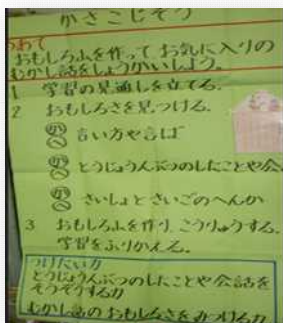 かさこじぞう
めあて
おもしろ人を作って お気に入りの
むかし話をしょうかいしよう。
1 学習の見通しを立てる。
2 おもしろさを見つける。
言い方や言ば
とうじょうじんぶつのしたことや会
さいしょとさいごのへんか
3 おもしろ人を作り、こうりゅうする。
学習をふりかえる。
つけたい力
とうじょうじんぶつのしたことや会話を
そうぞうする力
むかし話のおもしろさをみつける力